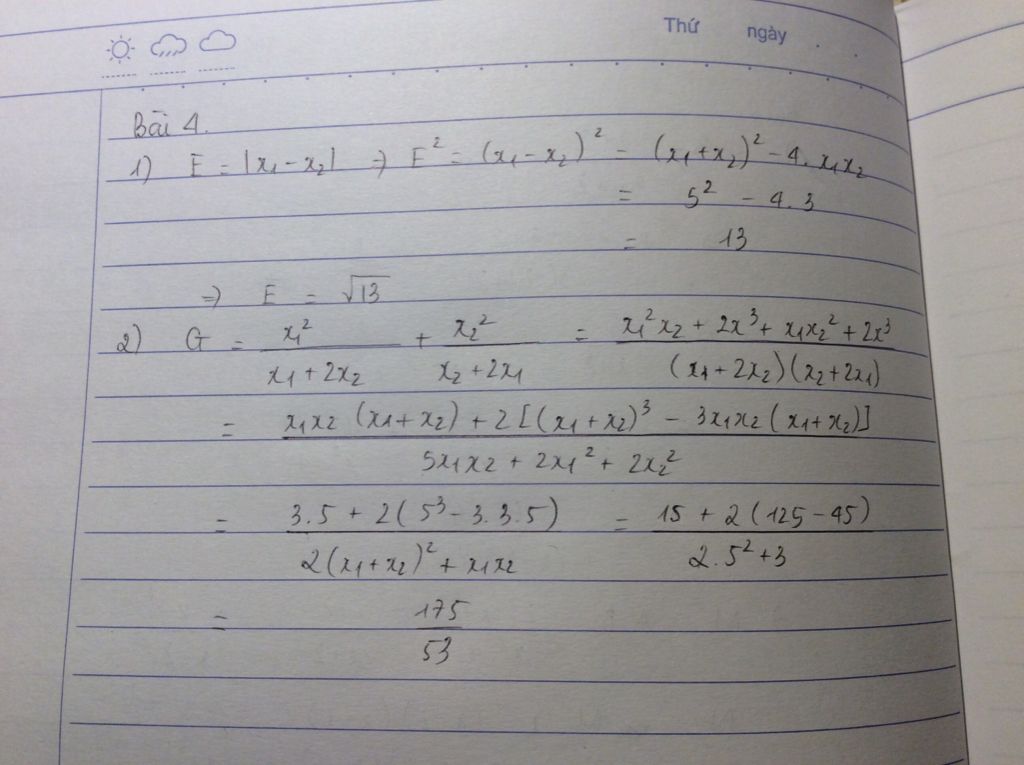 Thứ ngày
Bài 4.
1) E = |x₁ - x₂| ⇒ E² = (x₁ - x₂)² = (x₁ + x₂)² - 4. x₁x₂
= 5² - 4.3
= 13
⇒ E = √13
2) G = x₁²/(x₁ + 2x₂) + x₂²/(x₂ + 2x₁) = (x₁²x₂ + 2x³ + x₁x₂² + 2x³)/((x₁ + 2x₂)(x₂ + 2x₁))
= (x₁x₂ (x₁ + x₂) + 2[(x₁ + x₂)³ - 3x₁x₂(x₁ + x₂)])/(5x₁x₂ + 2x₁² + 2x₂²)
= (3.5 + 2(5³ - 3.3.5))/(2(x₁ + x₂)² + x₁x₂) = (15 + 2(125 - 45))/(2.5² + 3)
= 175/53